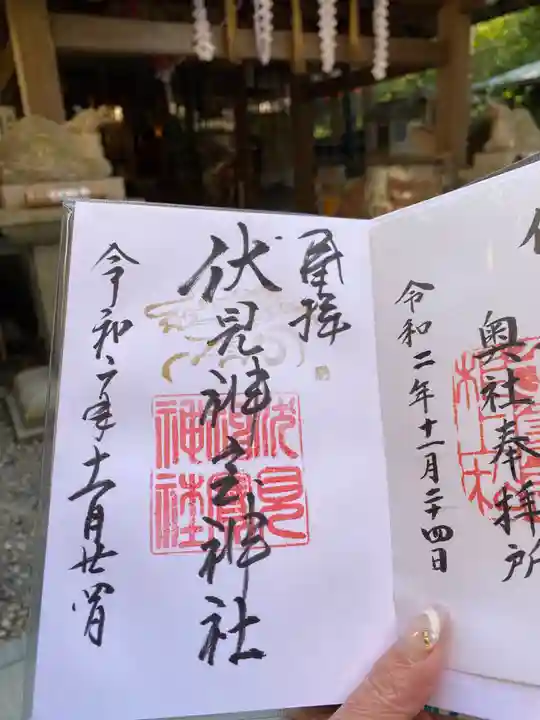 奉拝
伏見神宝神社
伏見神寳神社
令和二年十一月廿四日
奥社奉拝所
令和二年十一月二十四日